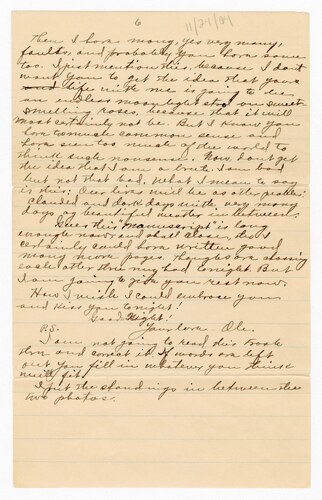 6
11/24/04
Then I have many, yes very many,
faults, and probably you have some
too. I just mention this, because I don't
want you to get the idea that your
life with me is going to be
an endless moonlight stroll on sweet
smelling roses, because that it will
most certainly not be. But I know you
have too much common sense and
have seen too much of the world to
think such nonsense. Now, don't get
the idea that I am a brute. I am bad
but not that bad. What I mean to say
is this: Our lives will be as other peoples:
Clouded and dark days with very many
days of beautiful weather in between.
Guess this "Manuscript" is long
enough now and shall close, tho I
certainly could have written good
many more pages. Thoughts are chasing
each other thru my head tonight. But
I am going to give you rest now.
How I wish I could embrace you
and kiss you tonight!
Good Night!
P.S. Your love - Ole.
I am not going to read this trash
thru and correct it. If words are left
out you fill in whatever you think
will fit.
I put the clandings in between the
two photos.